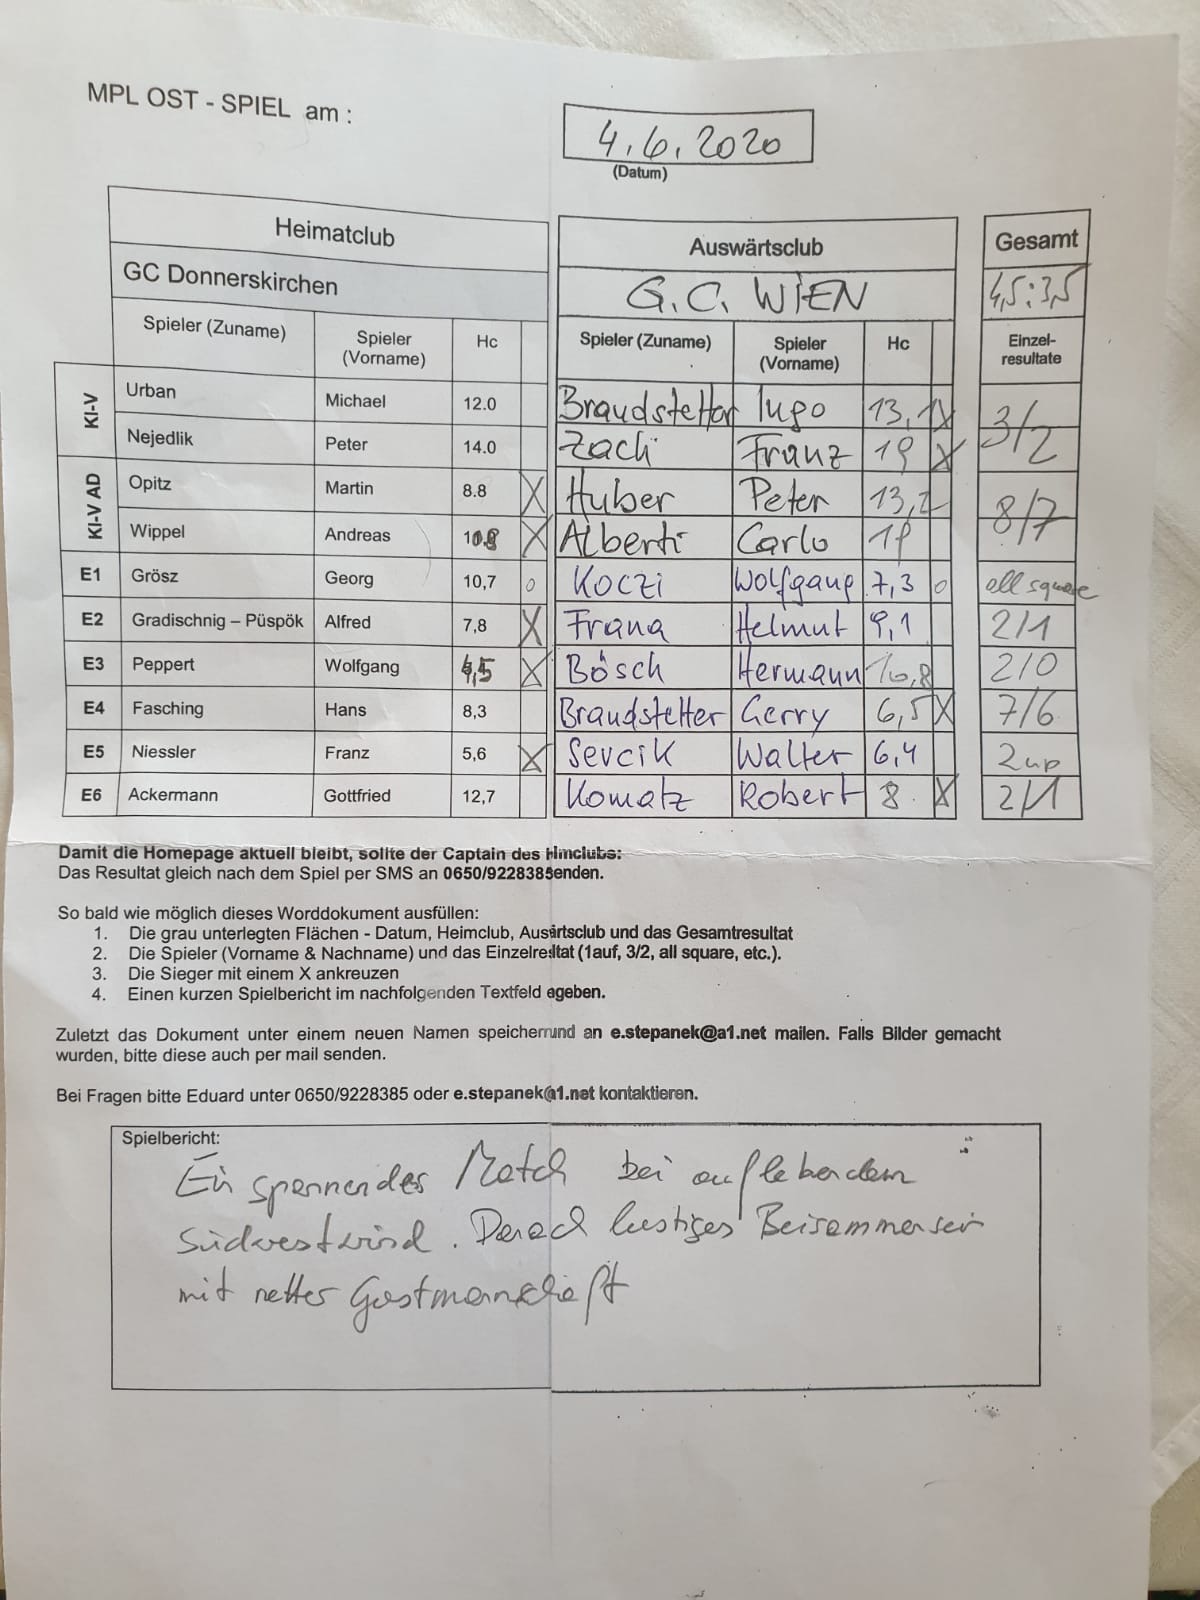 MPL OST - SPIEL am :
4.6.2020
(Datum)
Heimatclub
Auswärtsclub
Gesamt
GC Donnerskirchen
G.C. WIEN
4,5:3,5
Spieler (Zuname) Spieler (Vorname) Hc Spieler (Zuname) Spieler (Vorname) Hc Einzel-resultate
KI-V Urban Michael 12.0 Braudstetter Ingo 13,1 X 3/2
Nejedlik Peter 14.0 Zach Franz 19 X
KI-V AD Opitz Martin 8.8 X Huber Peter 13,2 8/7
Wippel Andreas X Alberti Carlo
E1 Grösz Georg 10,7 o Koczi Wolfgang 7,3 o all square
E2 Gradischnig – Püspök Alfred 7,8 X Frana Helmut 9,1 2/1
E3 Peppert Wolfgang 4,5 X Bösch Hermann 10,8 2/0
E4 Fasching Hans 8,3 Braudstetter Gerry 6,5 X 7/6
E5 Niessler Franz 5,6 X Sevcik Walter 6,4 2up
E6 Ackermann Gottfried 12,7 Komatz Robert 8 X 2/1
Damit die Homepage aktuell bleibt, sollte der Captain des Himclubs:
Das Resultat gleich nach dem Spiel per SMS an 0650/9228385enden.
So bald wie möglich dieses Worddokument ausfüllen:
1. Die grau unterlegten Flächen - Datum, Heimclub, Auswärtsclub und das Gesamtresultat
2. Die Spieler (Vorname & Nachname) und das Einzelresltat (1auf, 3/2, all square, etc.).
3. Die Sieger mit einem X ankreuzen
4. Einen kurzen Spielbericht im nachfolgenden Textfeld egeben.
Zuletzt das Dokument unter einem neuen Namen speicherrund an e.stepanek@a1.net mailen. Falls Bilder gemacht
wurden, bitte diese auch per mail senden.
Bei Fragen bitte Eduard unter 0650/9228385 oder e.stepanek@1.net kontaktieren.
Spielbericht:
Ein spannendes Match bei auflebendem
Südwestwind. Danach lustiges Beisammensein
mit netter Gastmannschaft